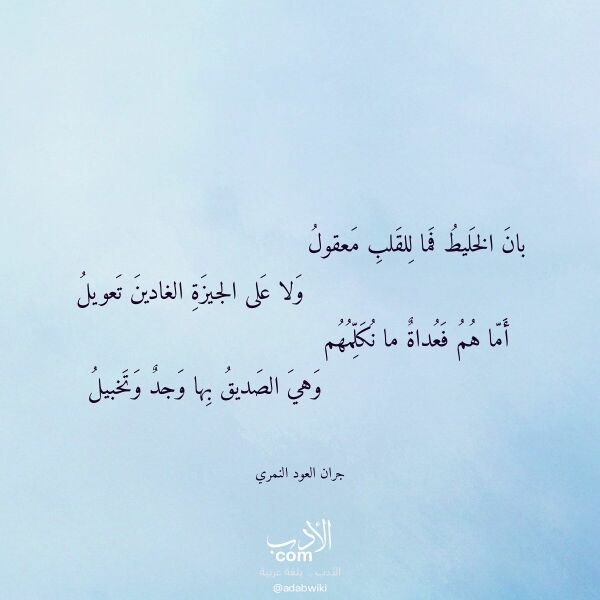 بانَ الخَليطُ فَما لِلقَلبِ مَعقولُ
وَلا عَلى الجيزَةِ الغادينَ تَعويلُ
أَمّا هُمُ فَعُداةٌ ما نُكَلِّمُهُم
وَهيَ الصَديقُ بِها وَجدٌ وَتَخبيلُ
جران العود النمري
الأدب
com
الأدب .. بلغة عربية
@adabwiki